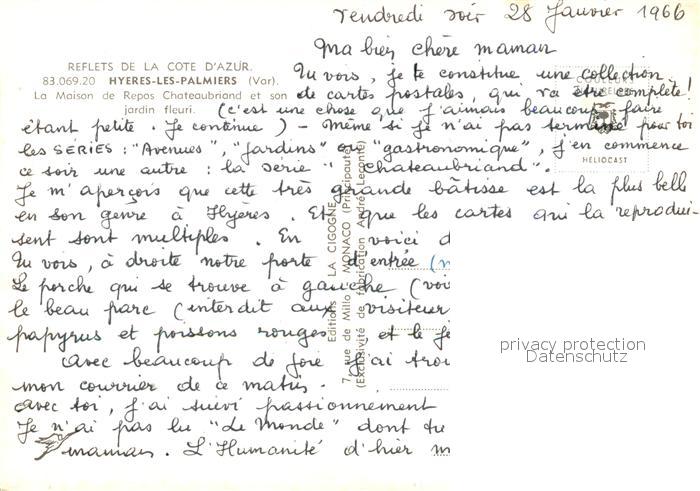 Vendredi soir 28 Janvier 1966
Ma bien chère maman
REFLETS DE LA COTE D'AZUR.
83.069.20 HYERES-LES-PALMIERS (Var).
La Maison de Repos Chateaubriand et son
jardin fleuri.
COULEURS
NATURELLES
HELIOCAST
Tu vois, je te constitue une collection
de cartes postales, qui va être complète!
(c'est une chose que j'aimais beaucoup faire
étant petite. Je continue) - Même si je n'ai pas terminé pour toi
les SÉRIES : "Avenues", "Jardins" ou "gastronomique", j'en commence
ce soir une autre : la série "Chateaubriand".
Je m'aperçois que cette très grande bâtisse est la plus belle
en son genre à Hyères. Et que les cartes qui la reprodui-
sent sont multiples. En voici d
Tu vois, à droite notre porte d'entrée (
Le porche qui se trouve à gauche (voi
le beau parc (interdit aux visiteur
papyrus et poissons rouges, et le je
Avec beaucoup de joie j'ai trou
mon courrier de ce matin.
avec toi, j'ai suivi passionnément
Je n'ai pas lu "Le Monde" dont tu
maman. L'Humanité d'hier m
Editions LA CIGOGNE
7, rue de Millo - MONACO (Principauté)
(Exclusivité de fabrication André Leconte)
privacy protection
Datenschutz